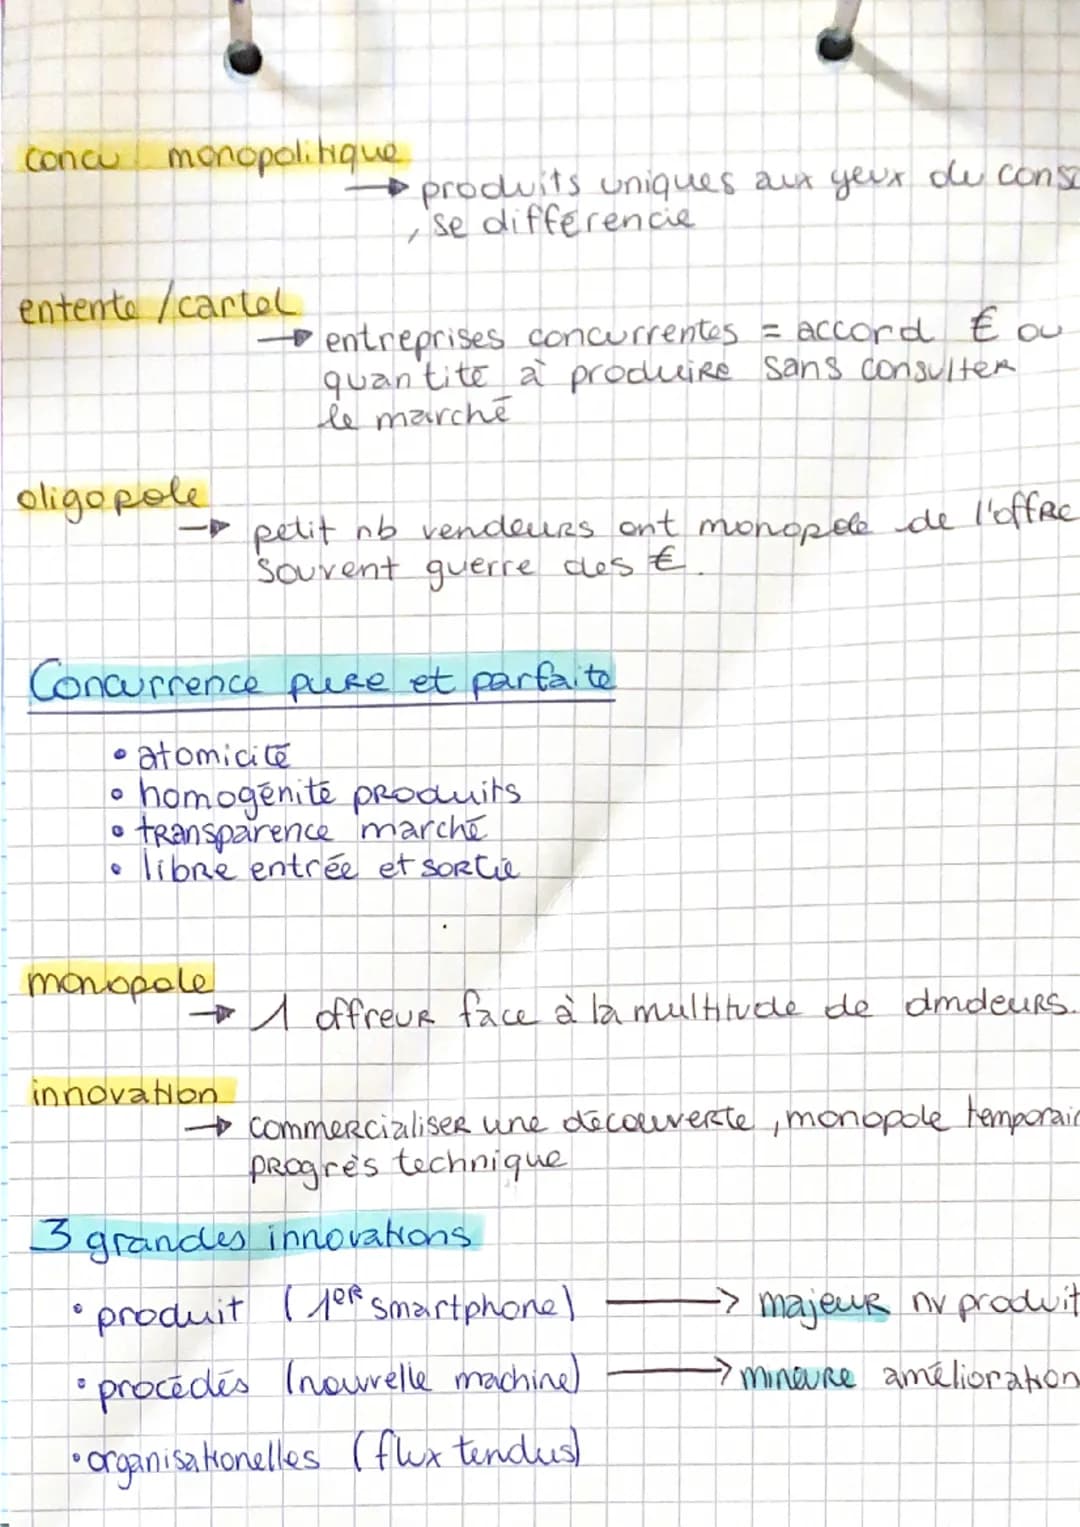 concu monopolitique
→ produits uniques aux yeux du conso
, se différencie
entente / cartel
→ entreprises concurrentes = accord € ou
quantité à produire sans consulter
le marché
oligopole
→ petit nb vendeurs ont monopole de l'offre
souvent guerre des €.
Concurrence pure et parfaite
• atomicité
• homogénité produits
• transparence marché
• libre entrée et sortie
monopole
→ 1 offreur face à la multitude de dmdeurs.
innovation
→ commercialiser une découverte, monopole temporair
progrès technique
3 grandes innovations
• produit (1er smartphone) → majeur nv produit
• procédés (nouvelle machine) → mineure amélioration
• organisationelles (flux tendus)